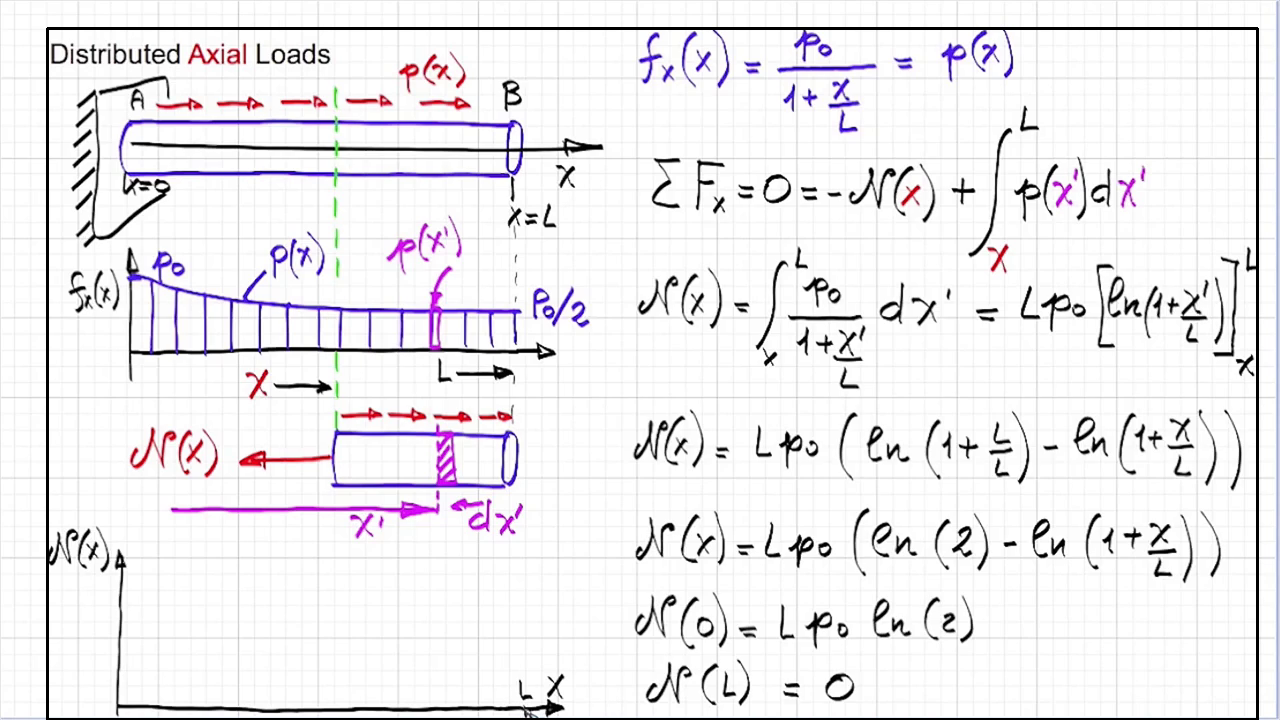 Distributed Axial Loads
p(x)
A
B
x=0
x
x=L
fₓ(x)
p₀
p(x)
p(x')
p₀/2
x
L
N(x)
x'
dx'
N(x)
L x
fₓ(x) = p₀/(1+x/L) = p(x)
∑Fₓ = 0 = -N(x) + ∫ₓᴸ p(x')dx'
N(x) = ∫ₓᴸ p₀/(1+x'/L) dx' = Lp₀[ln(1+x'/L)]ₓᴸ
N(x) = Lp₀(ln(1+L/L) - ln(1+x/L))
N(x) = Lp₀(ln(2) - ln(1+x/L))
N(0) = Lp₀ ln(2)
N(L) = 0